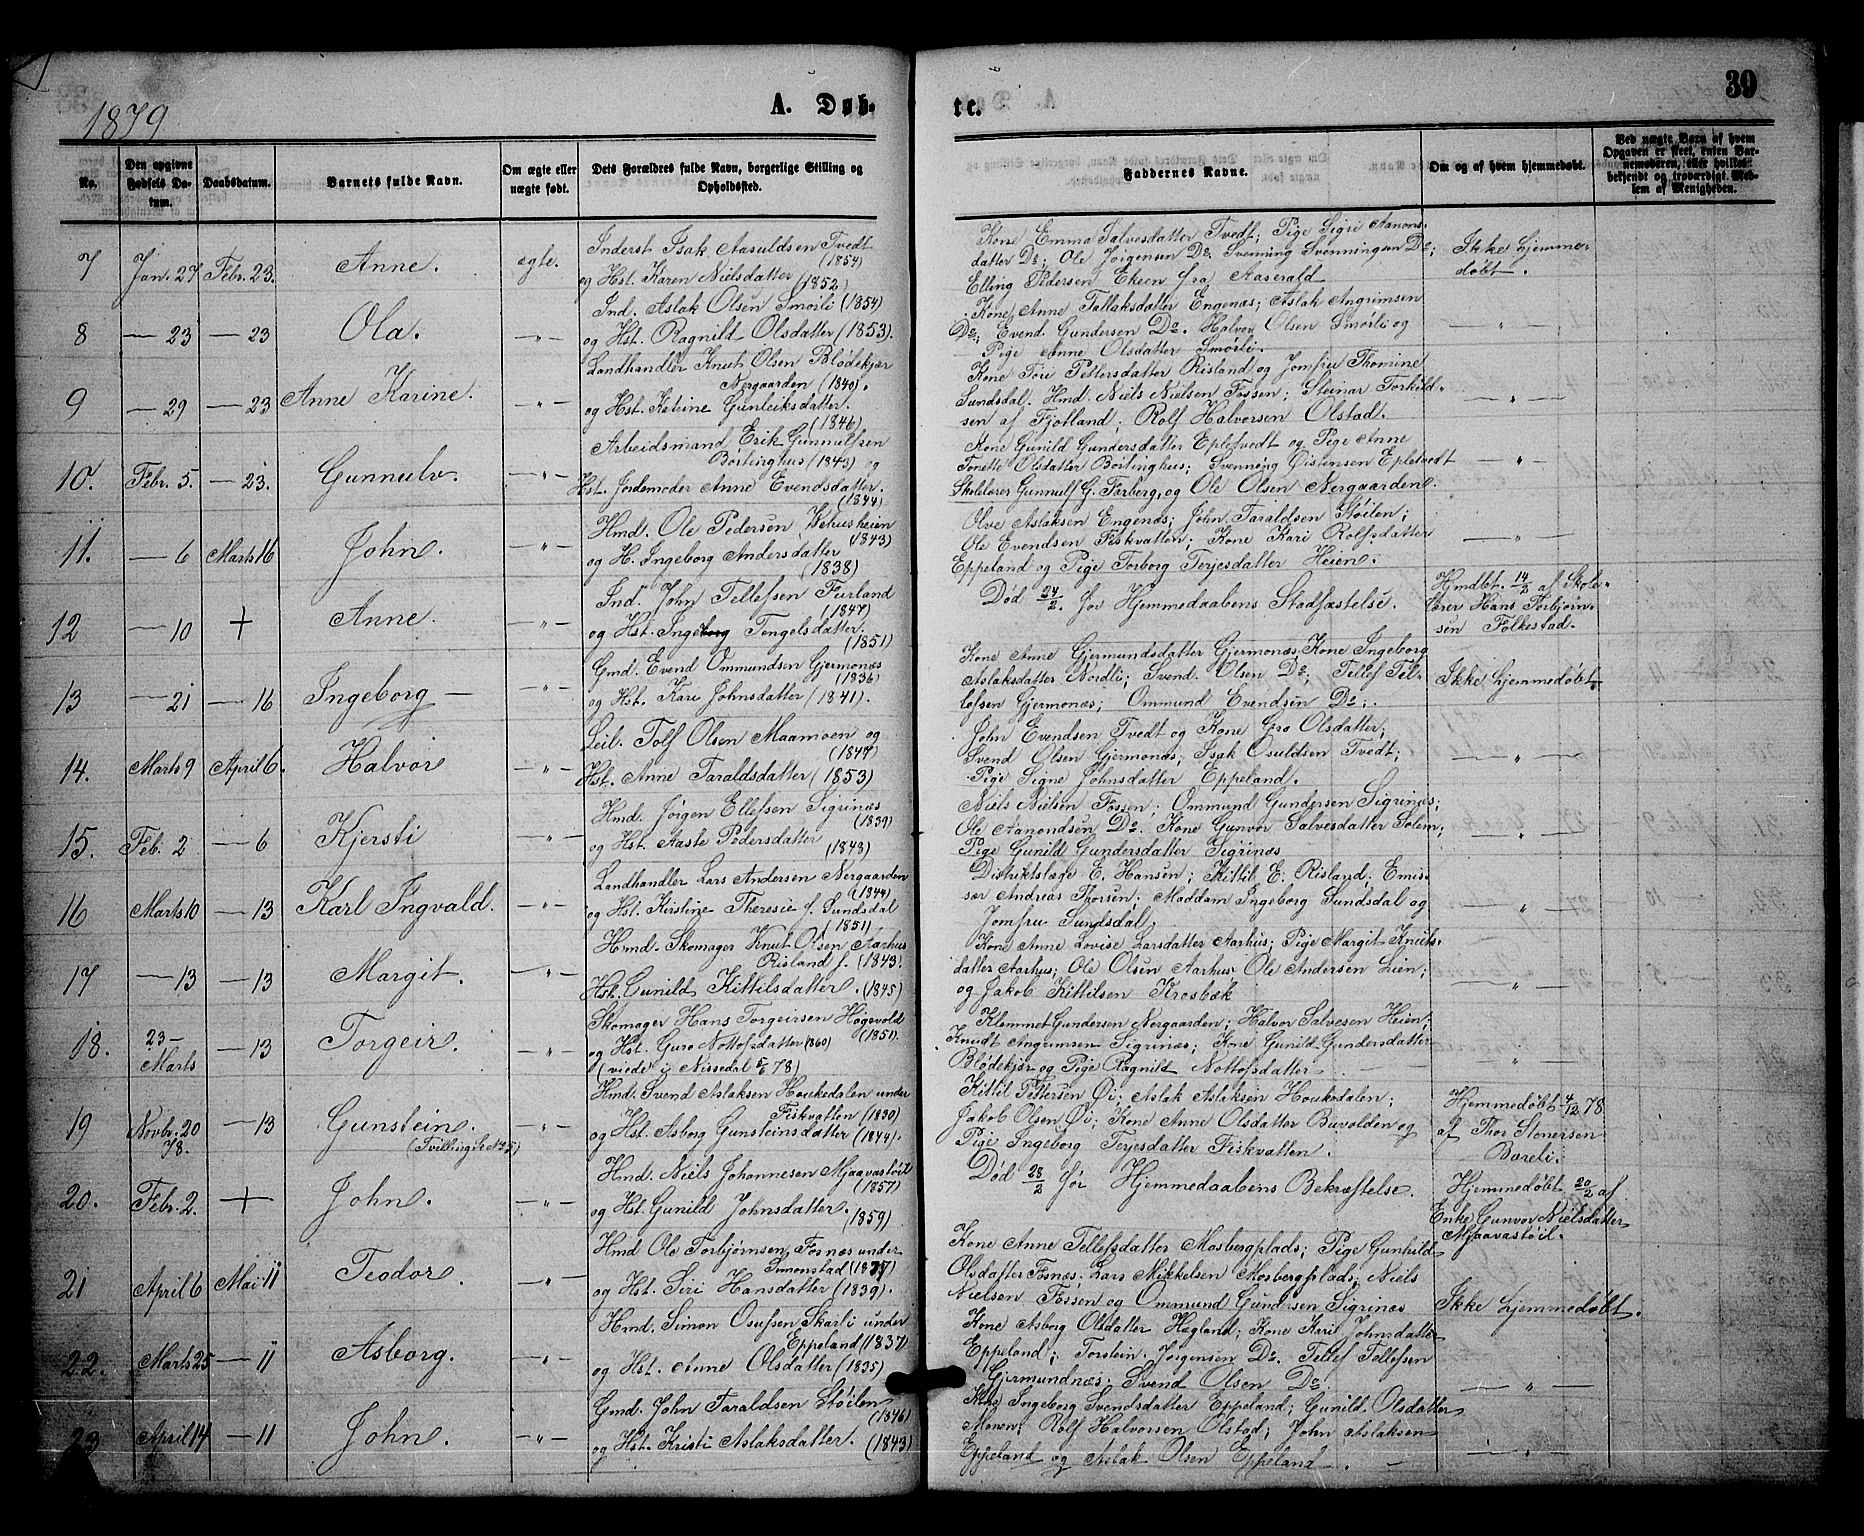 1879
A. Døb-
te.
39
No.
Den opgivne Fødsels Da-
tum.
Daabsdatum.
Barnets fulde Navn.
Om ægte eller
uægte født.
Dets Forældres fulde Navn, borgerlige Stilling og
Opholdssted.
Faddernes Navne.
Om og af hvem hjemmedøbt.
Ved uægte Børn af hvem
Opgaven er skeet, enten Bar-
nemoderen, eller hvilket
bekjendt og troværdigt Med-
lem af Menigheden.
7
Jan. 27
Febr. 23.
Anne.
ægte.
Inderst Isak Aasuldsen Tvedt
(1854)
og Hst. Karen Nielsdatter
(1852)
Kone Emma Salvesdatter Tvedt; Pige Sigri Aanons-
datter Do; Ole Jørgensen Do; Svenning Svenningsen Do;
Elling Pedersen Ekeen fra Aaserald
Ikke hjemme-
døbt.
8
— 23
— 23
Ola.
— " —
Ind. Aslak Olsen Smørli (1854)
og Hst. Ragnild Olsdatter (1853).
Kone Anne Tallaksdatter Engenæs; Aslak Angrimsen
Do; Evend Gundersen Do. Halvor Olsen Smørli og
Pige Anne Olsdatter Smørli.
— " —
9
— 29
— 23
Anne Karine.
— " —
Landhandler Knut Olsen Blødekjær
Nergaarden (1840).
og Hst. Katrine Gunleiksdatter.
(1846)
Kone Tori Pettersdatter Risland og Jomfru Thomine
Sundsdal. Hmd. Niels Nielsen Fossen; Steinar Torkild-
sen af Fjotland; Rolf Halvorsen Olstad.
— " —
10.
Febr. 5.
— 23.
Gunnulv.
— " —
Arbeidsmand Erik Gunnulfsen
Børtinghus (1843) og
Hst. Jordemoder Anne Evendsdatter.
(1844)
Kone Gunild Gundersdatter Epletvedt og Pige Anne
Tonette Olsdatter Bortinghus; Svennung Øistensen Epletvedt
Skolelærer Gunnulf G. Farberg, og Ole Olsen Nergaarden.
— " —
11.
— 6
Marts 16
John.
— " —
Hmd. Ole Pedersen Vehusheien
(1843)
og H. Ingeborg Andersdatter
(1838)
Olve Aslaksen Engenæs; John Taraldsen Støilen;
Ole Evendsen Fiskvatten; Kone Kari Rolfsdatter
Eppeland og Pige Torborg Terjesdatter Heien.
— " —
12
— 10
+
Anne.
— " —
Ind. John Tellefsen Furland
(1847)
og Hst. Ingeborg Tengelsdatter.
(1851)
Død 24/2 før Hjemmedaabens Stadfæstelse.
Hjmdbt. 14/2 af Skole-
lærer Hans Torbjørn-
sen Folkestad.
13
— 21
— 16
Ingeborg —
— " —
Gmd. Evend Ommundsen Gjermonæs
(1836)
og Hst. Kari Johnsdatter (1841).
Kone Anne Gjermundsdatter Gjermonæs; Kone Ingeborg
Aslaksdatter Nordli; Svend Olsen Do; Tellef Tel-
lefsen Gjermonæs; Ommund Evendsen Do.
Ikke hjemmedøbt
14.
Marts 9
April 6.
Halvor
— " —
Leil. Tolf Olsen Maamoen og
(1847)
Hst. Anne Taraldsdatter (1853)
John Evendsen Tvedt og Kone Gro Olsdatter;
Svend Olsen Gjermonæs; Isak Osuldsen Tvedt;
Pige Signe Johnsdatter Eppeland.
— " —
15.
Feb. 2
— 6
Kjersti
— " —
Hmd. Jørgen Ellefsen Sigrinæs
(1839)
og Hst. Aaste Pedersdatter
(1843)
Niels Nielsen Fossen; Ommund Gundersen Sigrinæs;
Ole Aanondsen Do. Kone Gunvor Salvesdatter Solem;
Pige Gunild Gundersdatter Sigrinæs
— " —
16
Marts 10
— 13
Karl Ingvald.
— " —
Landhandler Lars Andersen Nergaarden
(1844)
og Hst. Kirstine Theresie f. Sundsdal
(1851)
Distriktslæge E. Hansen; Kittil E. Risland; Emis-
sær Andreas Thorsen; Maddam Ingeborg Sundsdal og
Jomfru Sundsdal
— " —
17
— 13
— 13
Margit.
— " —
Hmd. Skomager Knut Olsen Aarhus
Risland f. (1843.
Hst. Gunild Kittilsdatter. (1845)
Kone Anne Lovise Larsdatter Aarhus; Pige Margit Knuts-
datter Aarhus; Ole Olsen Aarhus Ole Andersen Lien;
og Jakob Kittilsen Krosbæk
— " —
18.
23—
Marts
— 13
Torgeir.
— " —
Skomager Hans Torgeirsen Høgevold
(1851)
og Hst. Guro Nottofsdatter 1860)
(viede i Nissedal 5/6 78)
Klemmet Gundersen Nergaarden; Halvor Salvesen Heien;
Knudt Angrimsen Sigrinæs; Kone Gunild Gundersdatter
Blødekjær og Pige Ragnild Nottofsdatter
— " —
19
Novbr. 20
78.
— 13
Gunstein.
(Tvilling se No 5)
— " —
Hmd. Svend Aslaksen Houkedalen under
Fiskvatten (1830)
og Hst. Asborg Gunsteinsdatter (1844).
Kittil Pettersen Øi; Aslak Aslaksen Houksdalen;
Jakob Olsen Øi; Kone Anne Olsdatter Buvolden og
Pige Ingeborg Terjesdatter Fiskvatten.
Hjemmedøbt 4/12 78
af Thor Stenersen
Bareli.
20.
Febr. 2.
+
John.
— " —
Hmd. Niels Johannesen Mjaavastøil
(1857)
og Hst. Gunild Johnsdatter.
(1859)
Død 28/2 før Hjemmedaabens Bekræftelse.
Hjemmedøbt 20/2 af
Enke Gunvor Nielsdatter
Mjaavastøil.
21
April 6
Mai 11
Teodor.
— " —
Hmd Ole Torbjørnsen Fosnæs under
Simonstad (1837)
og Hst. Siri Hansdatter (1839).
Kone Anne Tellefsdatter Mosbergplads; Pige Gunhild
Olsdatter Fosnæs. Lars Mikkelsen Mosbergplads, Niels
Nielsen Fossen og Ommund Gundersen Sigrinæs
Ikke hjemmedøbt.
22.
Marts 25
— 11
Asborg.
— " —
Hmd. Simon Osufsen Skarli under
Eppeland (1837)
og Hst. Anne Olsdatter (1835)
Kone Asborg Olsdatter Hægland; Kone Karil Johnsdatter
Eppeland; Torstein Jørgensen Do. Tellef Tellefsen
Gjermundnæs; Svend Olsen Do
— " —
23
April 14
— 11
John.
— " —
Gmd. John Taraldsen Støilen
(1846)
og Hst. Kristi Aslaksdatter. (1843)
Kone Ingeborg Svendsdatter Eppeland; Gunild Olsdatter
Monen; Rolf Halvorsen Olstad; John Aslaksen
Eppeland og Aslak Olsen Eppeland.
— " —